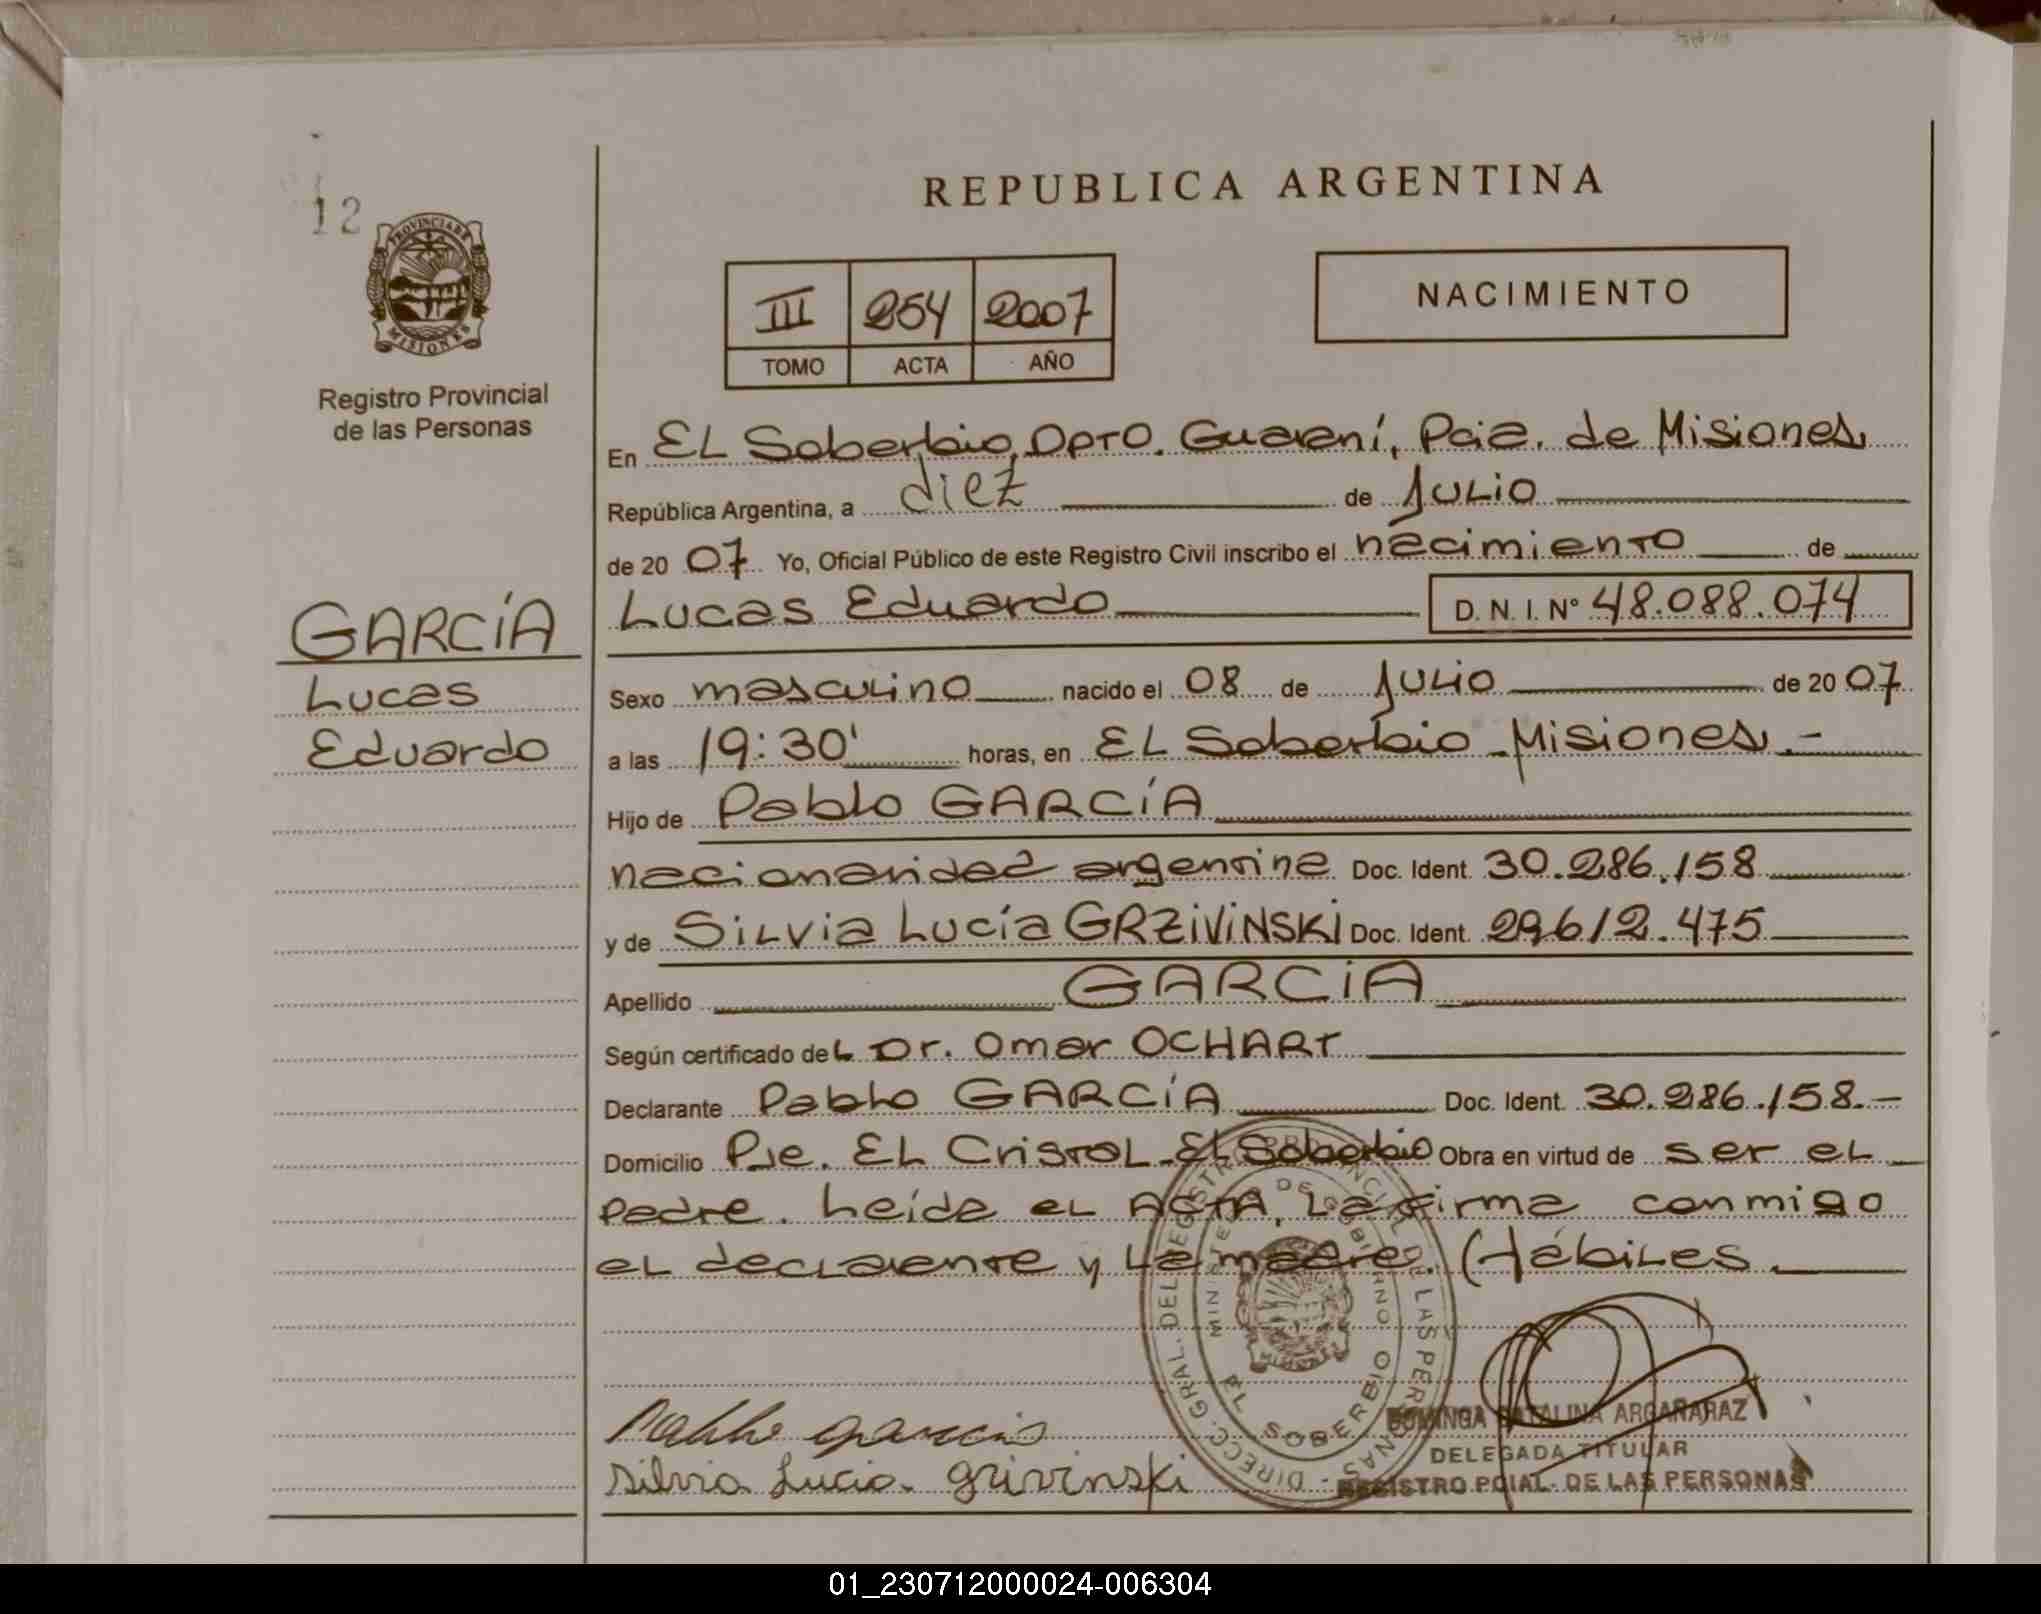 12
PROVINCIA DE
MISIONES
Registro Provincial
de las Personas
GARCÍA
Lucas
Eduardo
REPUBLICA ARGENTINA
III 254 2007
TOMO ACTA AÑO
NACIMIENTO
En EL Soberbio, Dpto. Guaraní, Pcia. de Misiones
República Argentina, a diez de Julio
de 20 07 Yo, Oficial Público de este Registro Civil inscribo el nacimiento de
Lucas Eduardo D. N. I. N° 48.088.074
Sexo masculino nacido el 08 de Julio de 20 07
a las 19:30' horas, en EL Soberbio - Misiones.-
Hijo de Pablo GARCÍA
nacionalidad argentina Doc. Ident. 30.286.158
y de Silvia Lucía GRZIVINSKI Doc. Ident. 29.612.475
Apellido GARCIA
Según certificado del Dr. Omar OCHART
Declarante Pablo GARCÍA Doc. Ident. 30.286.158.-
Domicilio Pje. EL Cristal - El Soberbio Obra en virtud de ser el
padre. Leída el ACTA, La firma conmigo
el declarante y La madre. (Hábiles
DIRECC. GRAL. DEL REGISTRO PROVINCIAL DE LAS PERSONAS -
MINISTERIO DE GOBIERNO
EL SOBERBIO
Pablo garcia
Silvia Lucia grivinski
DOMINGA CATALINA ARGAÑARAZ
DELEGADA TITULAR
REGISTRO PCIAL. DE LAS PERSONAS
01_230712000024-006304